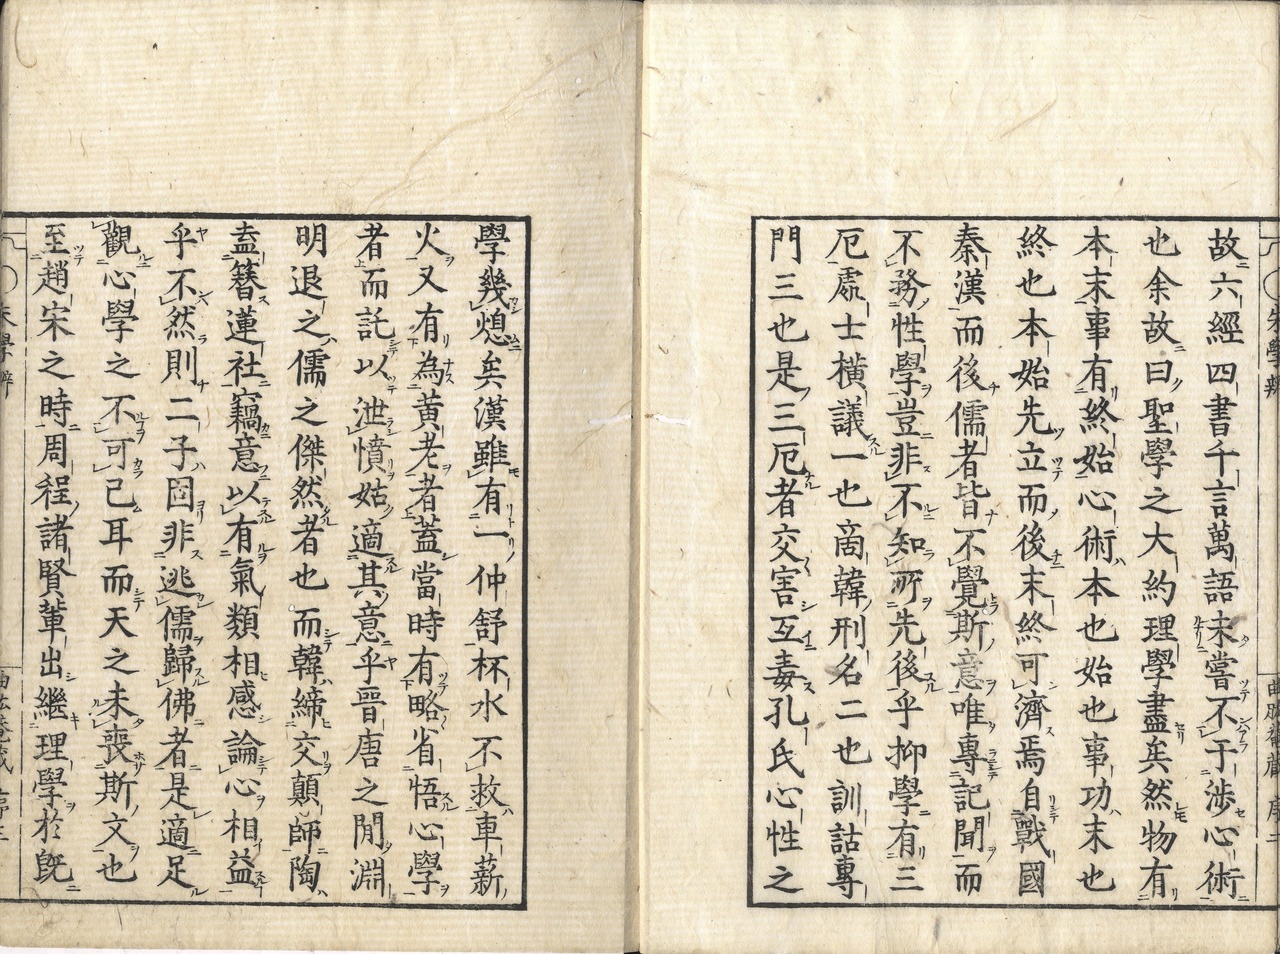 故六經四書千言萬語未嘗不于涉心術
也余故曰聖學之大約理學盡矣然物有
本末事有終始心術本也始也事功末也
終也本始先立而後末終可濟焉自戰國
秦漢而後儒者皆不覺斯意唯專記聞而
不務性學豈非不知所先後乎抑學有三
厄處士橫議一也商韓刑名二也訓詁專
門三也是三厄者交害互毒孔氏心性之
學幾熄矣漢雖有一仲舒杯水不救車薪
火又有為黃老者蓋當時有略省悟心學
者而託以泄憤姑適其意乎晉唐之間淵
明退之儒之傑然者也而韓締交顛師陶
盍簪蓮社竊意以有氣類相感論心相益
乎不然則二子固非逃儒歸佛者是適足
觀心學之不可已耳而天之未喪斯文也
至趙宋之時周程諸賢輩出繼理學於既